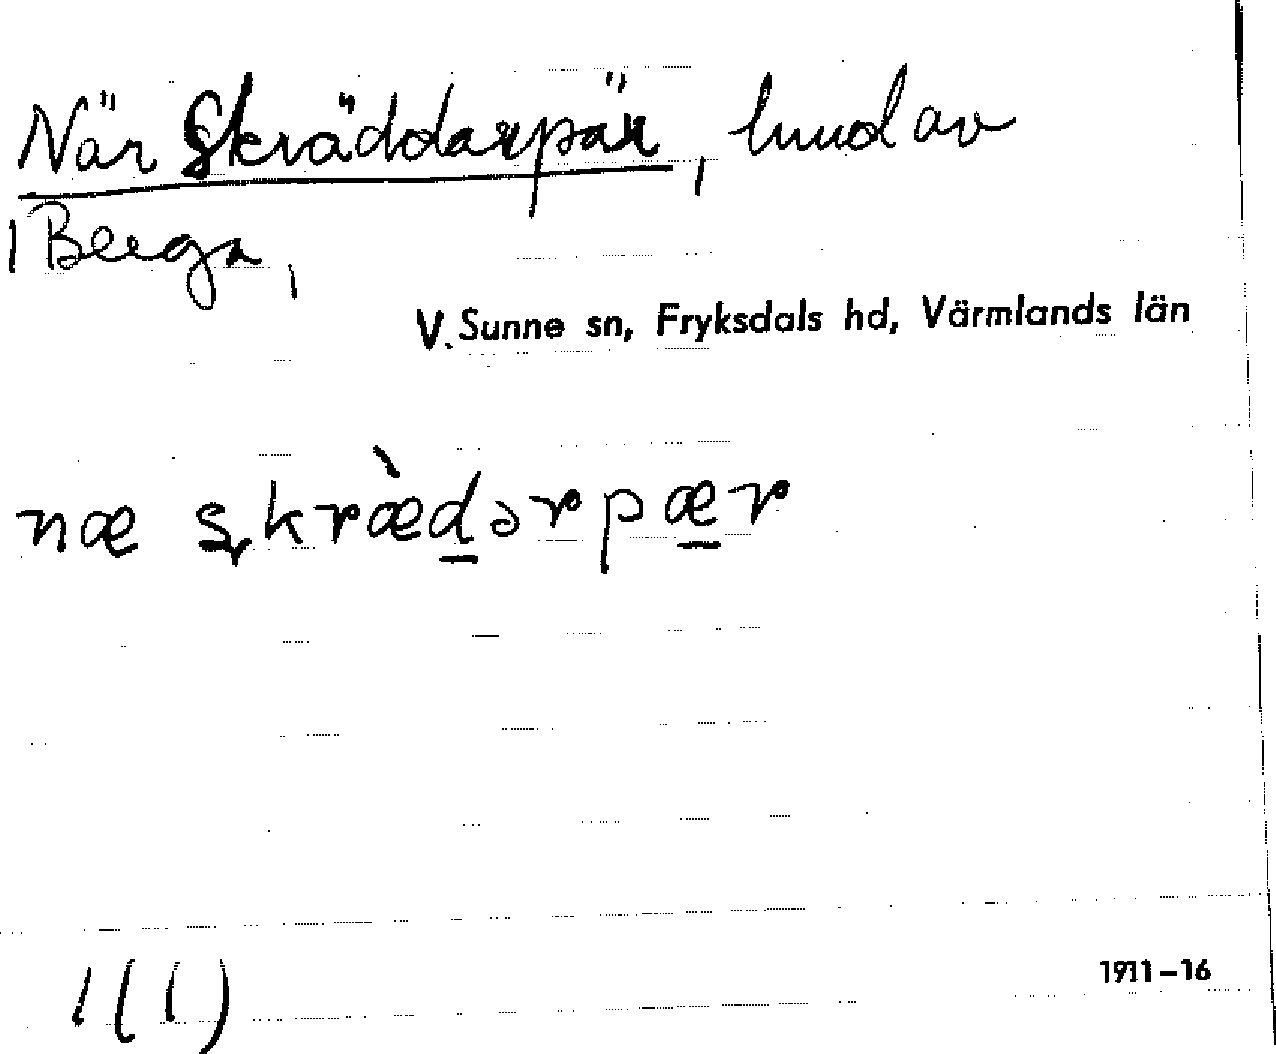 När Skräddarpär, hmd av
Berga,
V. Sunne sn, Fryksdals hd, Värmlands län
næ skræ̀dərpær
1(1)
1911–16